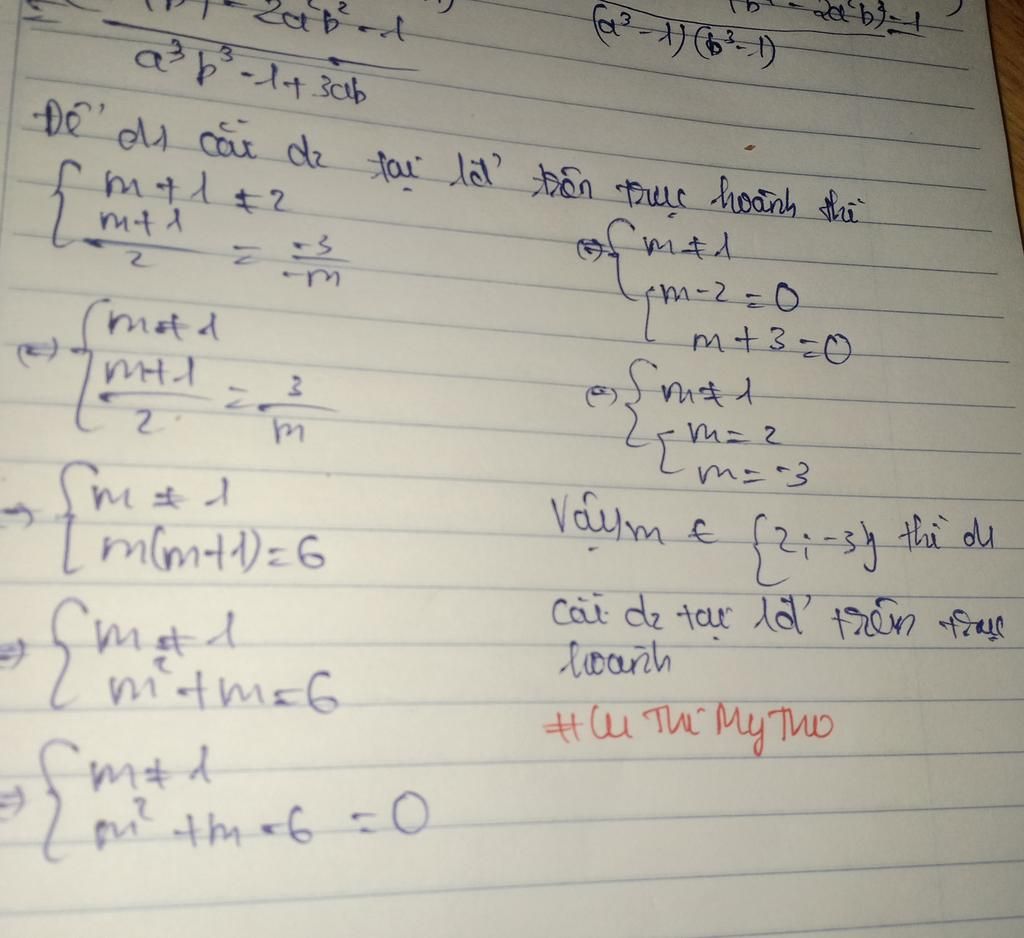 2a²b² - 1
a³b³ - 1 + 3ab
(a³ - 1) (b³ - 1)
Để d1 cắt d2 tại 1đ' trên trục hoành thì
{ m + 1 ≠ 2
m + 1 / 2 = -3 / -m
(=) { m ≠ 1
m + 1 / 2 = 3 / m
=> { m ≠ 1
m(m+1) = 6
=> { m ≠ 1
m² + m = 6
=> { m ≠ 1
m² + m - 6 = 0
(=) { m ≠ 1
[ m - 2 = 0
m + 3 = 0
(=) { m ≠ 1
[ m = 2
m = -3
Vậy m ∈ {2; -3} thì d1
cắt d2 tại 1đ' trên trục
hoành